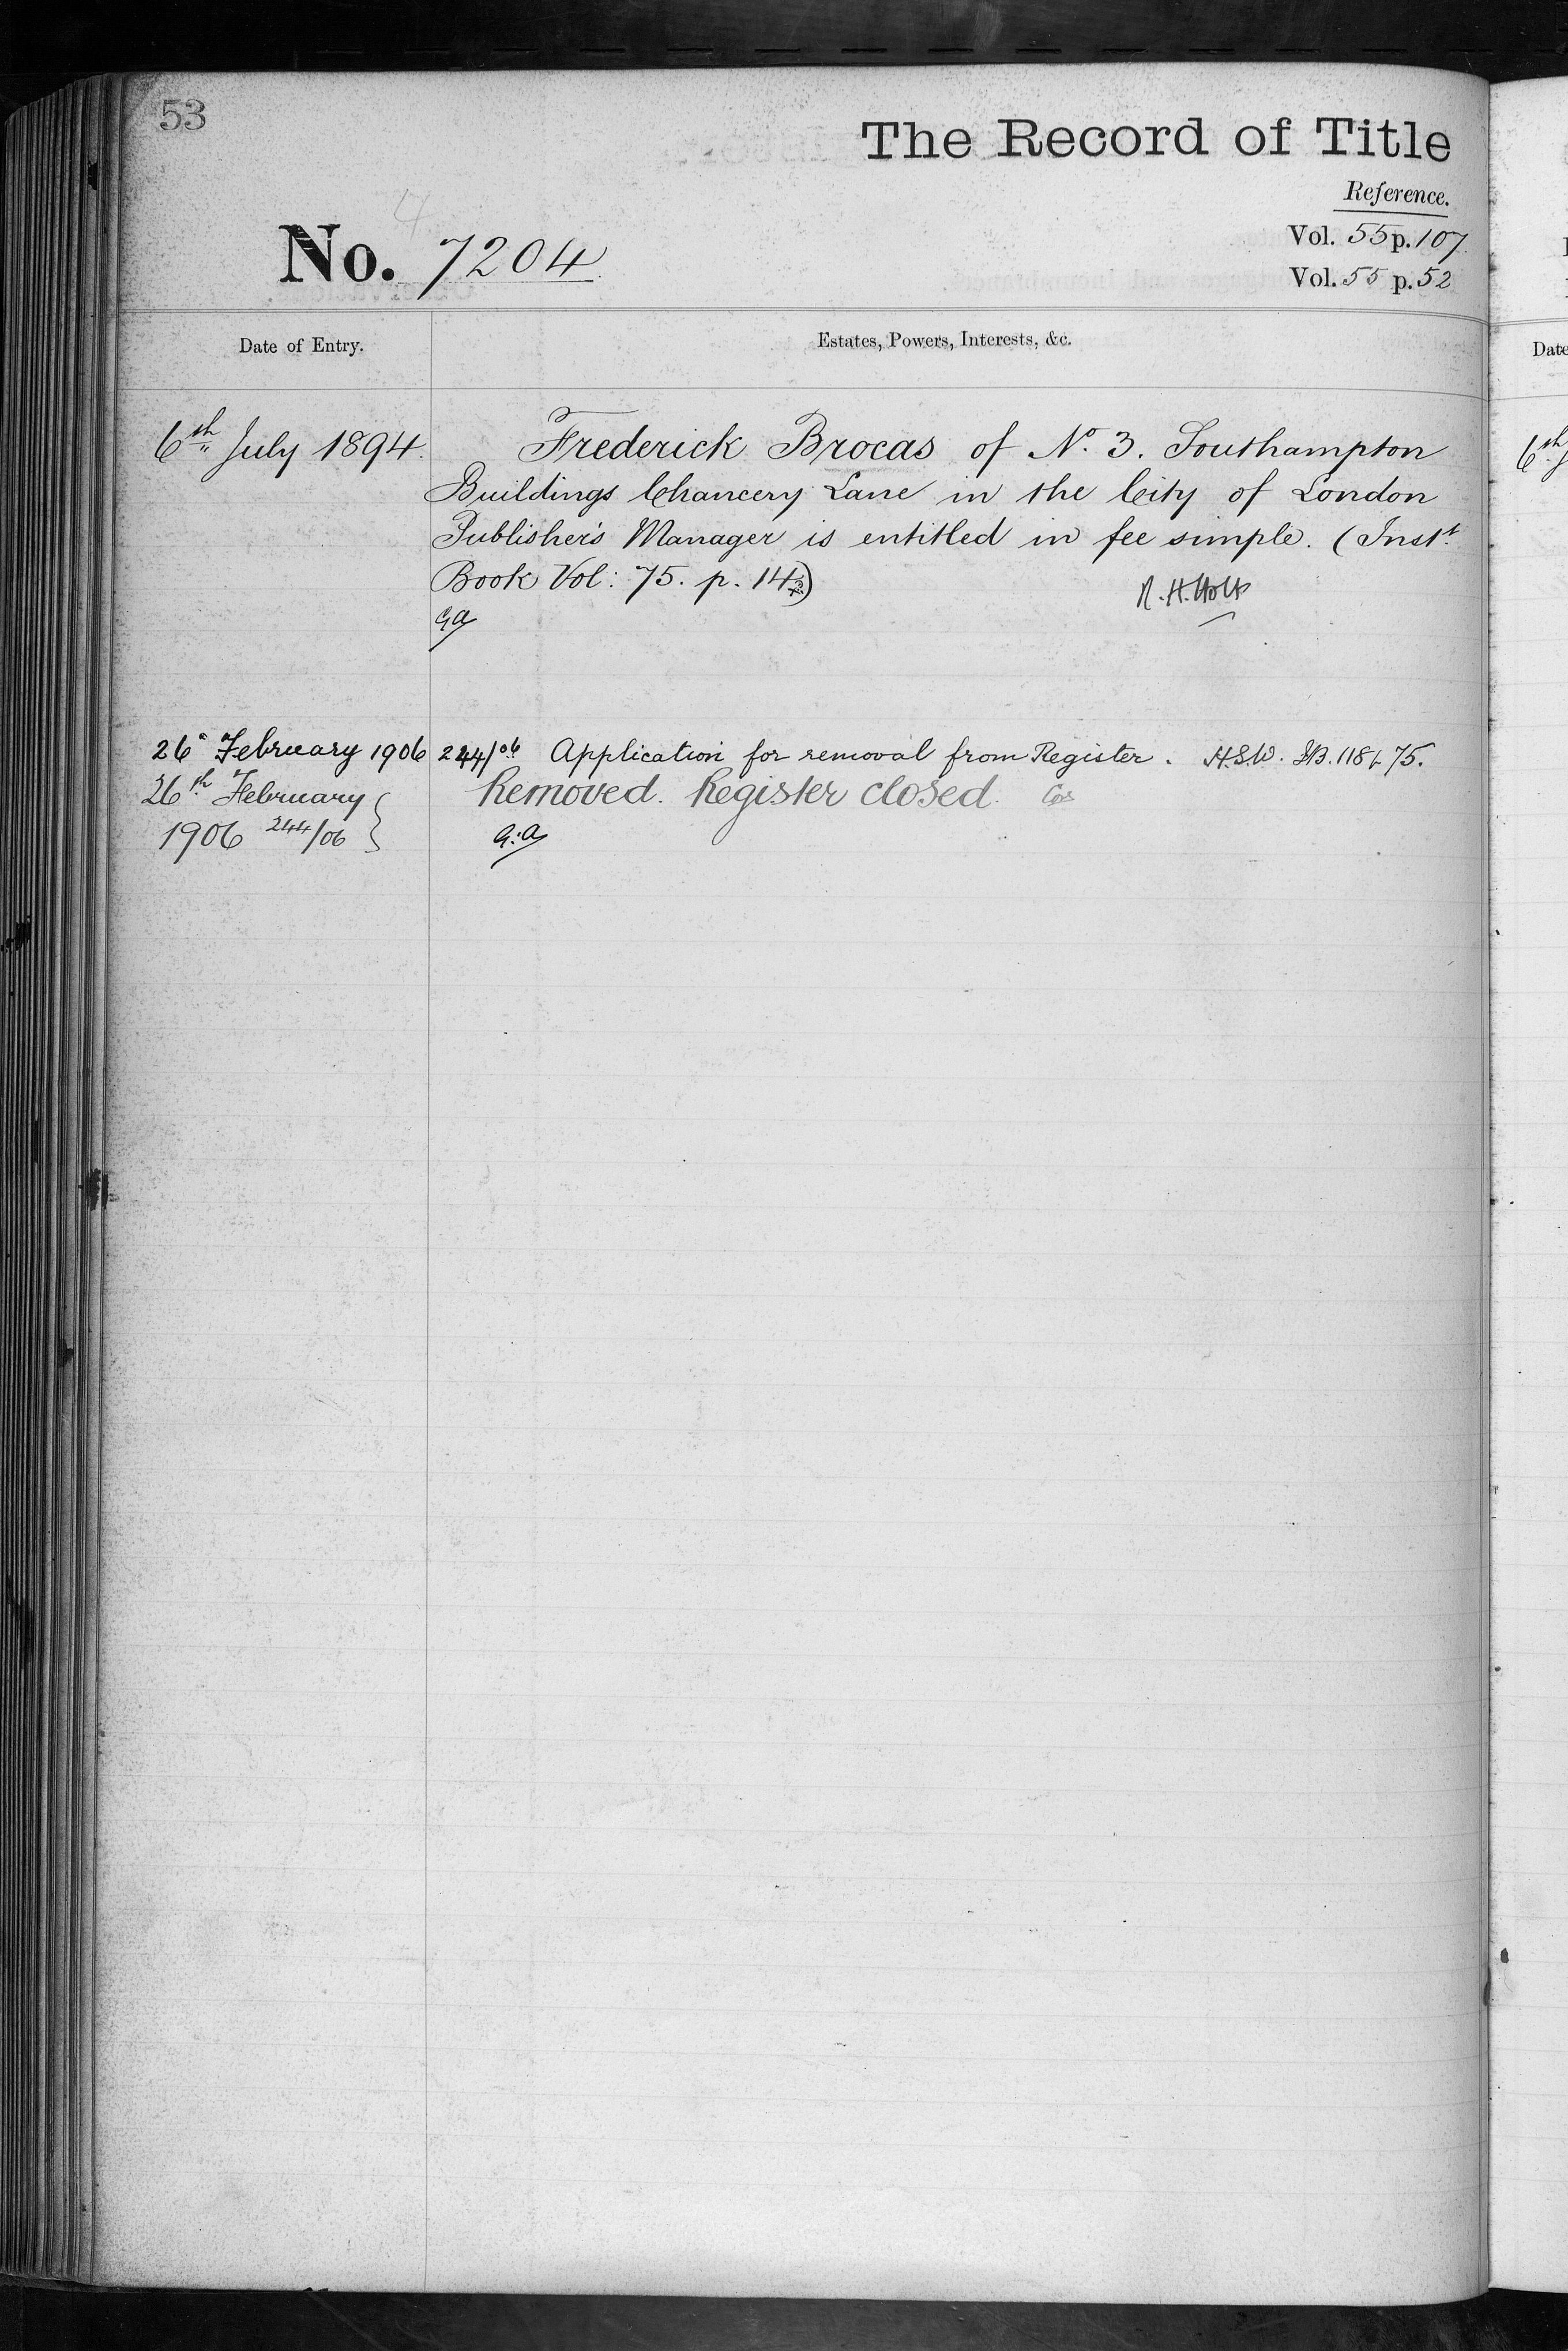 53
The Record of Title
Reference.
Vol. 55 p. 107
Vol. 55 p. 52
No. 7204
Date of Entry.
Estates, Powers, Interests, &c.
6th July 1894.
Frederick Brocas of No. 3. Southampton
Buildings Chancery Lane in the City of London
Publisher's Manager is entitled in fee simple. (Inst.
Book Vol: 75. p. 14
R. H. Holt
GA
26" February 1906
244/06 Application for removal from Register. H.S.W. 118 75.
26th February
1906 244/06
Removed. Register closed.
G.A
Date
6th J